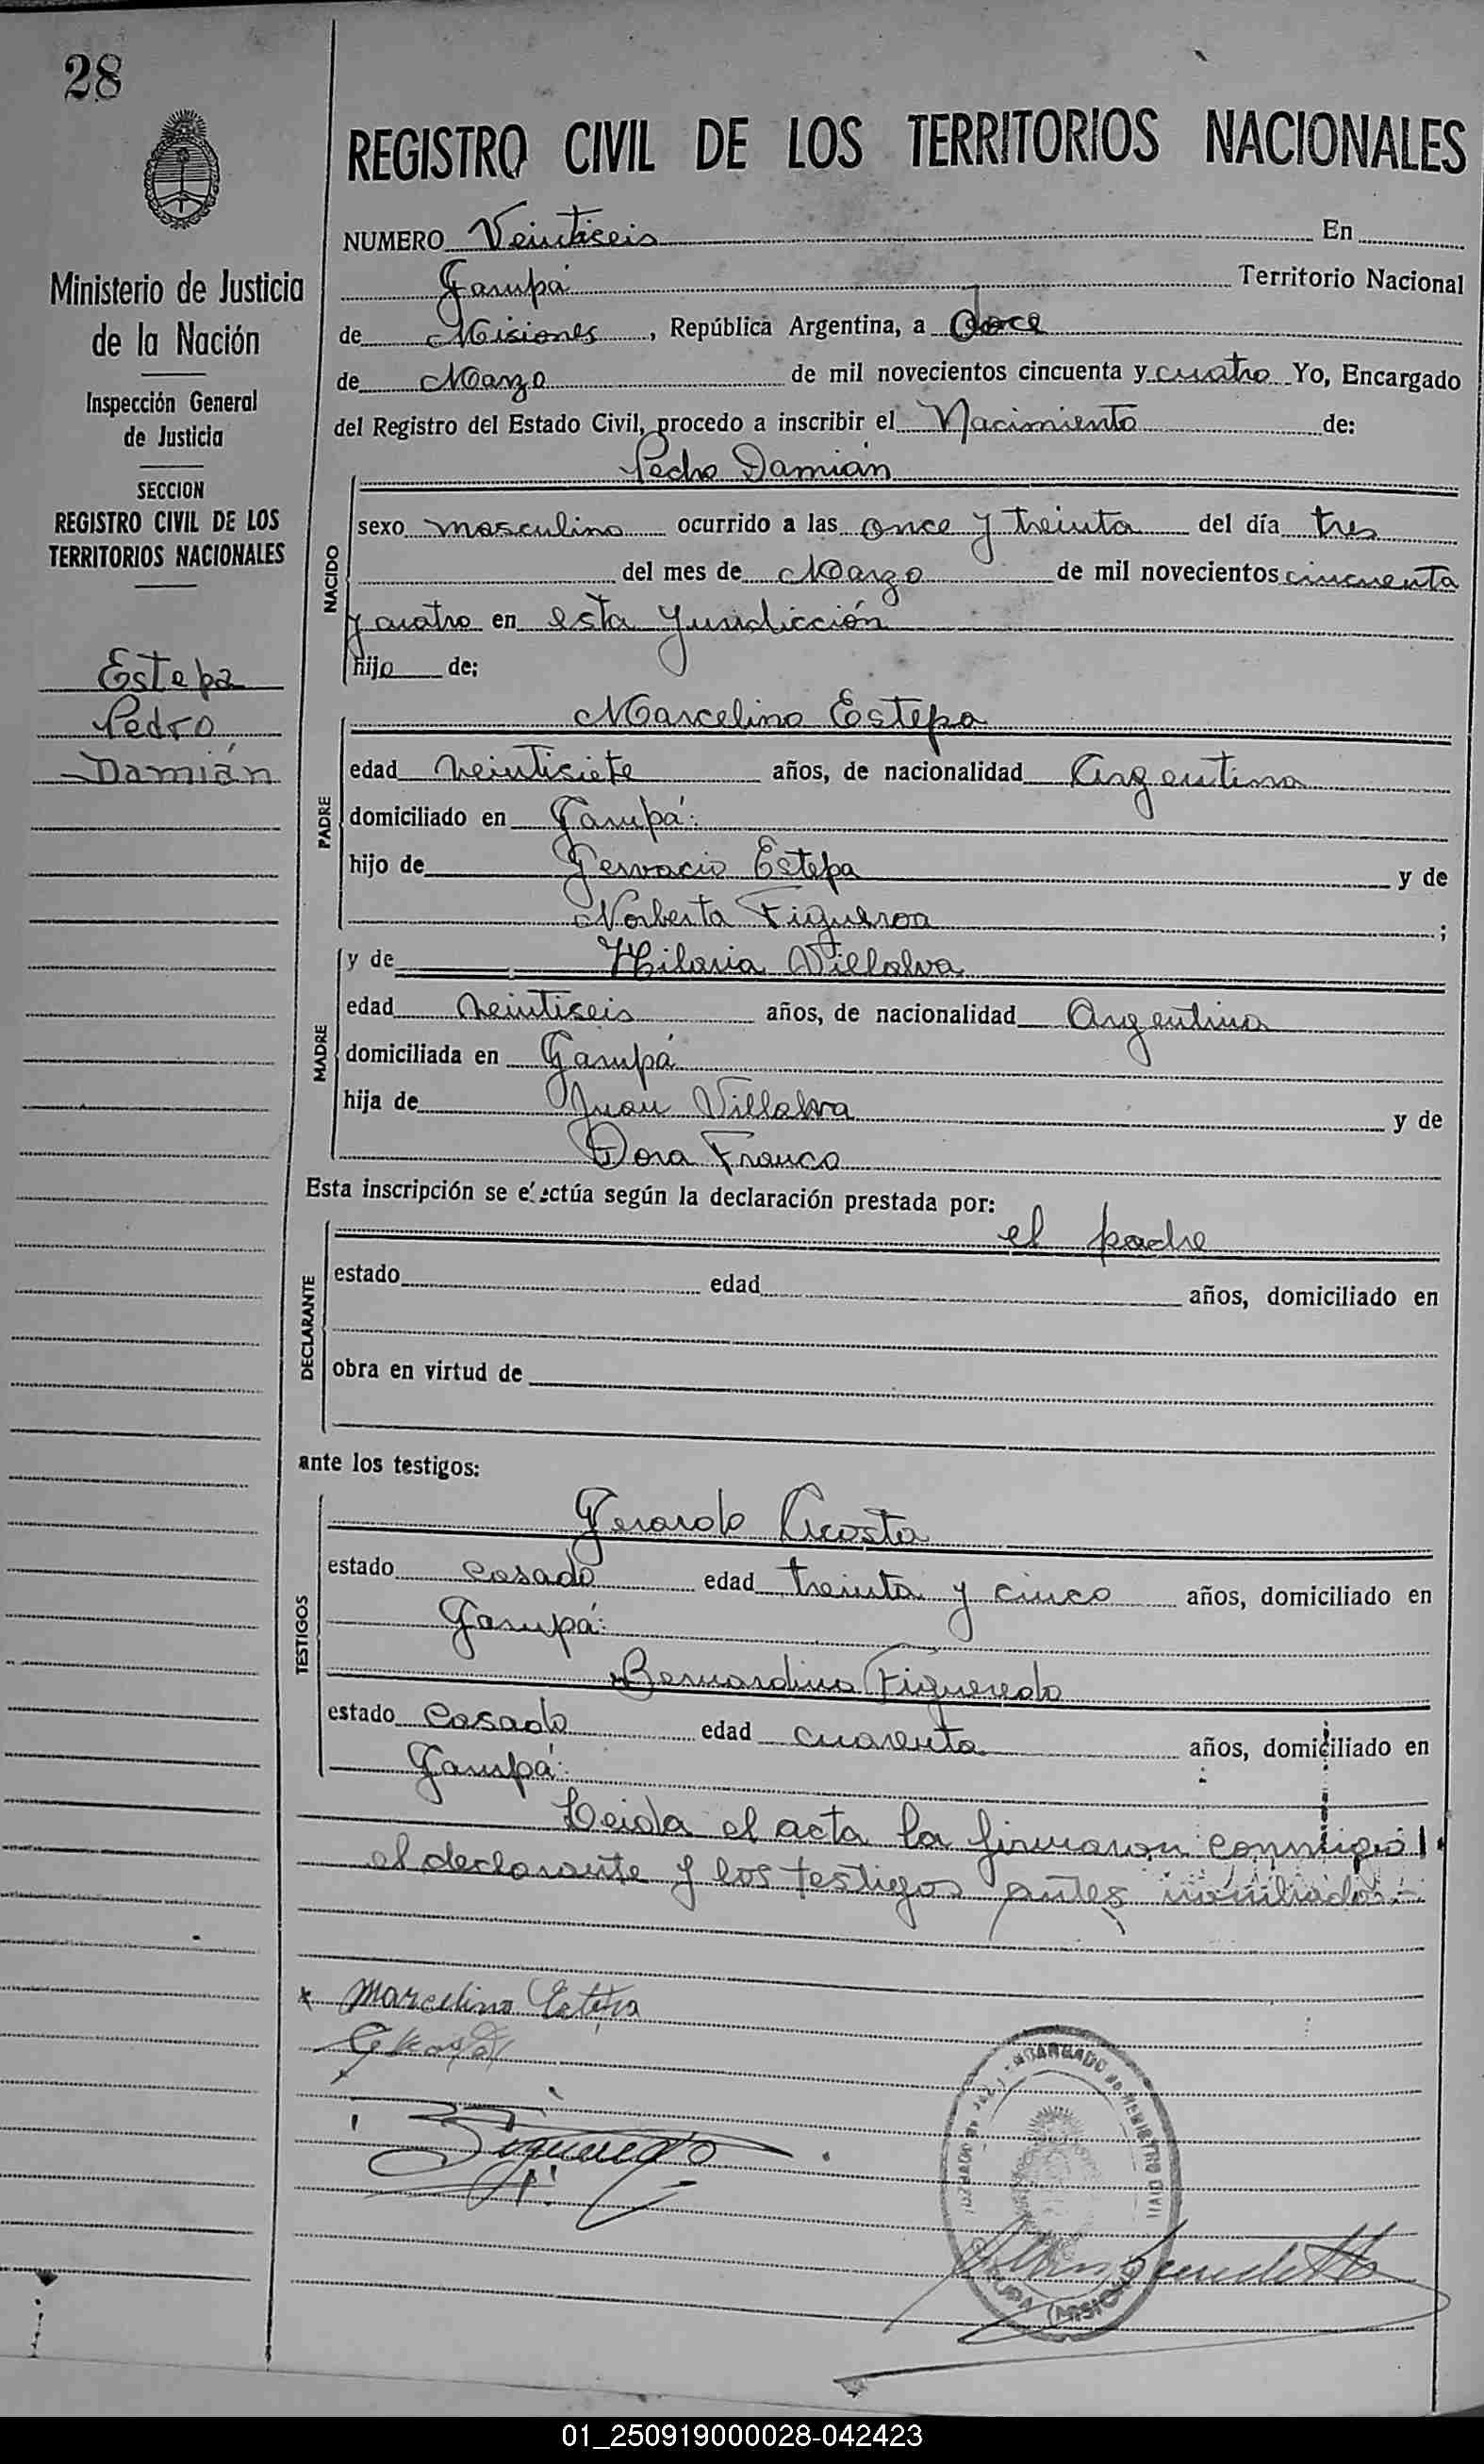 28
REGISTRO CIVIL DE LOS TERRITORIOS NACIONALES
Ministerio de Justicia
de la Nación
Inspección General
de Justicia
SECCION
REGISTRO CIVIL DE LOS
TERRITORIOS NACIONALES
Estepa
Pedro
Damián
NUMERO Veintiseis En
Garupá Territorio Nacional
de Misiones, República Argentina, a doce
de Marzo de mil novecientos cincuenta y cuatro Yo, Encargado
del Registro del Estado Civil, procedo a inscribir el Nacimiento de:
Pedro Damián
NACIDO
sexo masculino ocurrido a las once y treinta del día tres
del mes de Marzo de mil novecientos cincuenta
y cuatro en esta Jurisdicción
hijo de;
PADRE
Marcelino Estepa
edad veintisiete años, de nacionalidad Argentina
domiciliado en Garupá.
hijo de Gervacio Estepa y de
Norberta Figueroa ;
MADRE
y de Hilaria Villalva
edad veintiseis años, de nacionalidad Argentina
domiciliada en Garupá
hija de Juan Villalva y de
Dora Franco
Esta inscripción se efectúa según la declaración prestada por:
el padre
DECLARANTE
estado edad años, domiciliado en
obra en virtud de
ante los testigos:
TESTIGOS
Gerardo Acosta
estado casado edad treinta y cinco años, domiciliado en
Garupá.
Bernardino Figueredo
estado casado edad cuarenta años, domiciliado en
Garupá.
Leida el acta la firmaron conmigo
el declarante y los testigos antes
x Marcelino Estepa
Figueredo
ENCARGADO REGISTRO CIVIL
GARUPA (MISIONES)
01_250919000028-042423